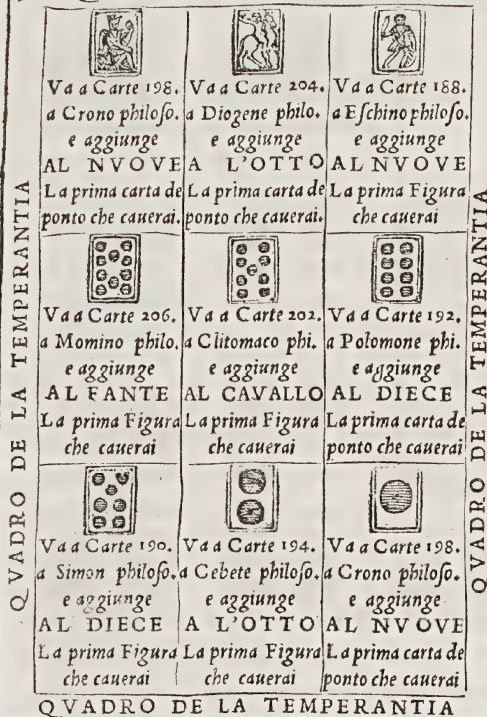 Va a Carte 198.
a Crono philoſo.
e aggiunge
AL NVOVE
La prima carta de
ponto che cauerai.
Va a Carte 204.
a Diogene philo.
e aggiunge
A L'OTTO
La prima carta de
ponto che cauerai.
Va a Carte 188.
a Eſchino philoſo.
e aggiunge
AL NVOVE
La prima Figura
che cauerai
Va a Carte 206.
a Momino philo.
e aggiunge
AL FANTE
La prima Figura
che cauerai
Va a Carte 202.
a Clitomaco phi.
e aggiunge
AL CAVALLO
La prima Figura
che cauerai
Va a Carte 192.
a Polomone phi.
e aggiunge
AL DIECE
La prima carta de
ponto che cauerai
Va a Carte 190.
a Simon philoſo.
e aggiunge
AL DIECE
La prima Figura
che cauerai
Va a Carte 194.
a Cebete philoſo.
e aggiunge
A L'OTTO
La prima Figura
che cauerai
Va a Carte 198.
a Crono philoſo.
e aggiunge
AL NVOVE
La prima carta de
ponto che cauerai
QVADRO DE LA TEMPERANTIA
QVADRO DE LA TEMPERANTIA
QVADRO DE LA TEMPERANTIA